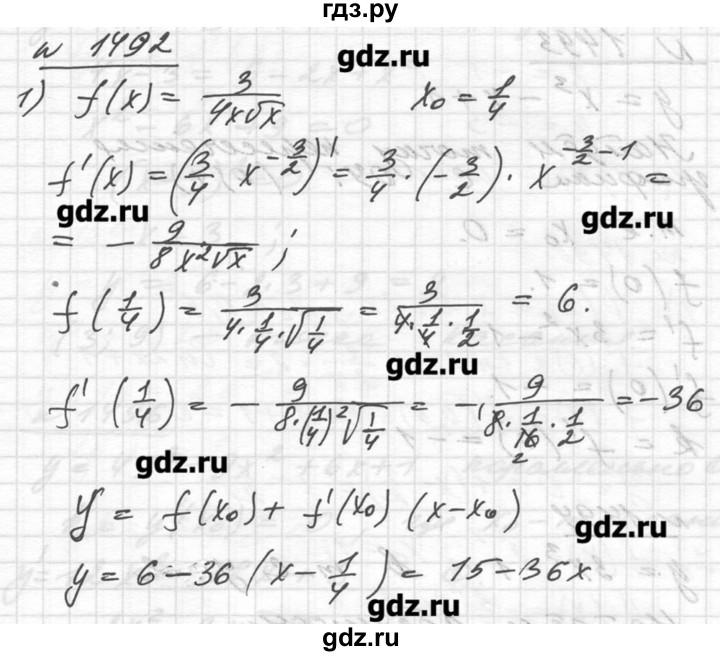 гдз.ру
N 1492
gdz.ru
1) f(x) = 3/(4x√x) x₀ = 1/4
f'(x) = (3/4 x^(-3/2))' = 3/4 · (-3/2) · x^(-3/2 - 1) =
gdz.ru gdz.ru
= - 9/(8x²√x) ;
f(1/4) = 3/(4 · 1/4 · √(1/4)) = 3/(4 · 1/4 · 1/2) = 6.
gdz.ru
f'(1/4) = - 9/(8 · (1/4)² √(1/4)) = - 9/(8 · 1/16 · 1/2) = -36
2
gdz.ru
y = f(x₀) + f'(x₀) (x - x₀)
gdz.ru
y = 6 - 36 (x - 1/4) = 15 - 36x
gdz.ru
gdz.ru